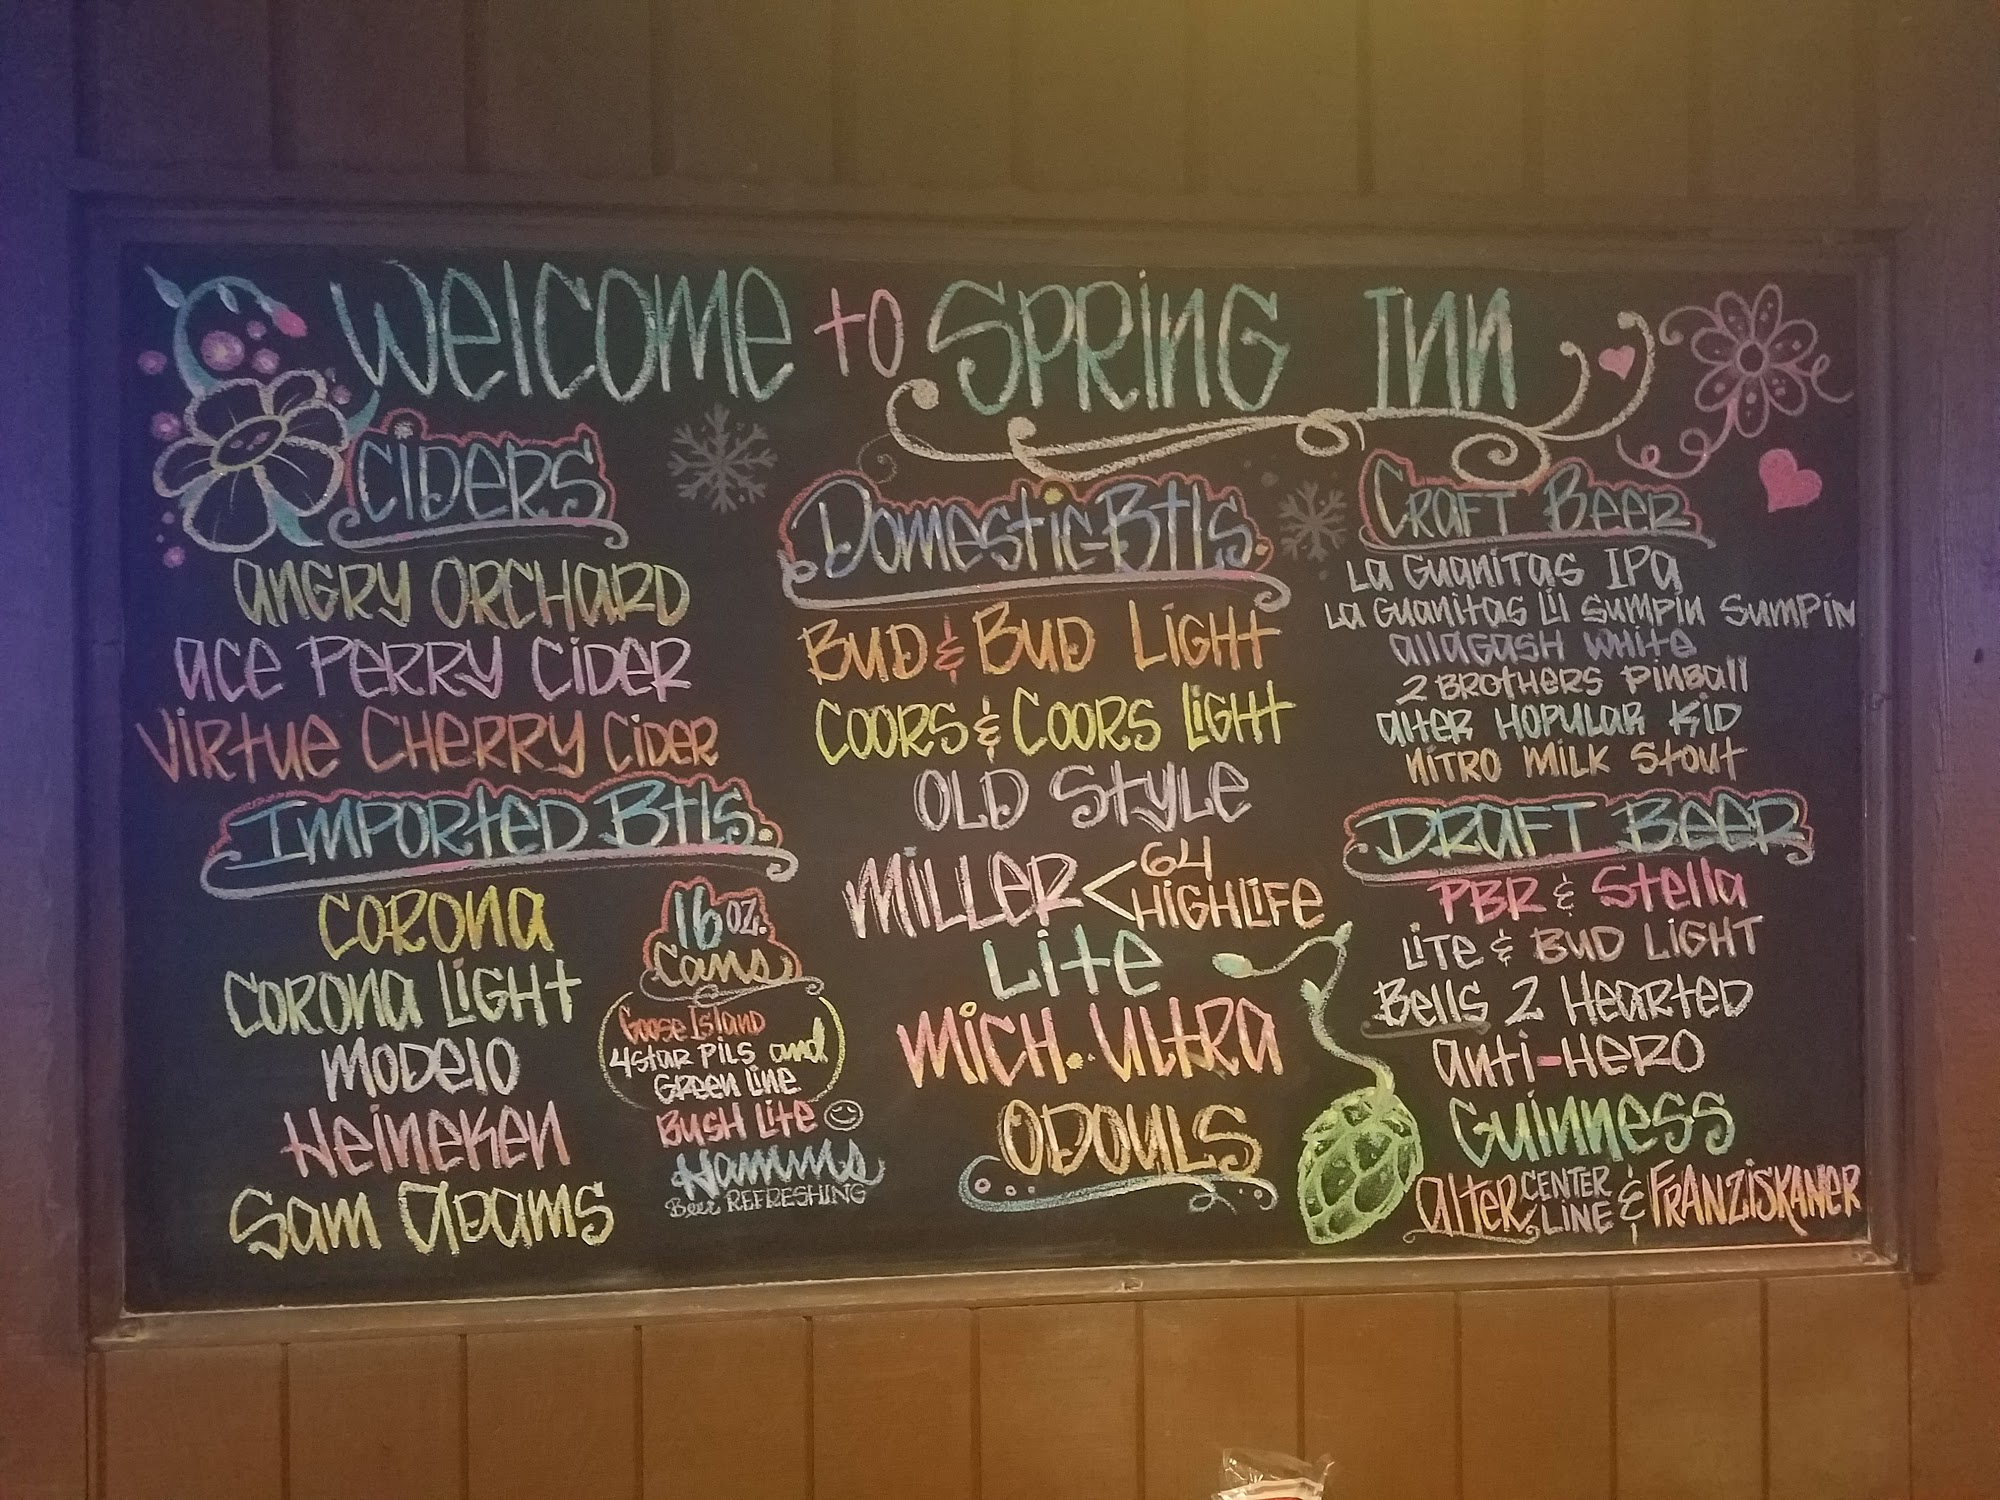 Welcome to Spring Inn
Ciders
Angry Orchard
Ace Perry Cider
Virtue Cherry Cider
Imported Btls.
Corona
Corona Light
Modelo
Heineken
Sam Adams
16 oz.
Cans
Goose Island
4 Star Pils and
Green Line
Bush Lite
Hamms
Beer Refreshing
Domestic Btls.
Bud & Bud Light
Coors & Coors Light
Old Style
Miller < 64
HighLife
Lite
Mich. Ultra
Odouls
Craft Beer
La Guanitas IPA
La Guanitas Lil Sumpin Sumpin
Allagash White
2 Brothers Pinball
Alter Hopular Kid
Nitro Milk Stout
Draft Beer
PBR & Stella
Lite & Bud Light
Bells 2 Hearted
Anti-Hero
Guinness
Alter Center Line & Franziskaner